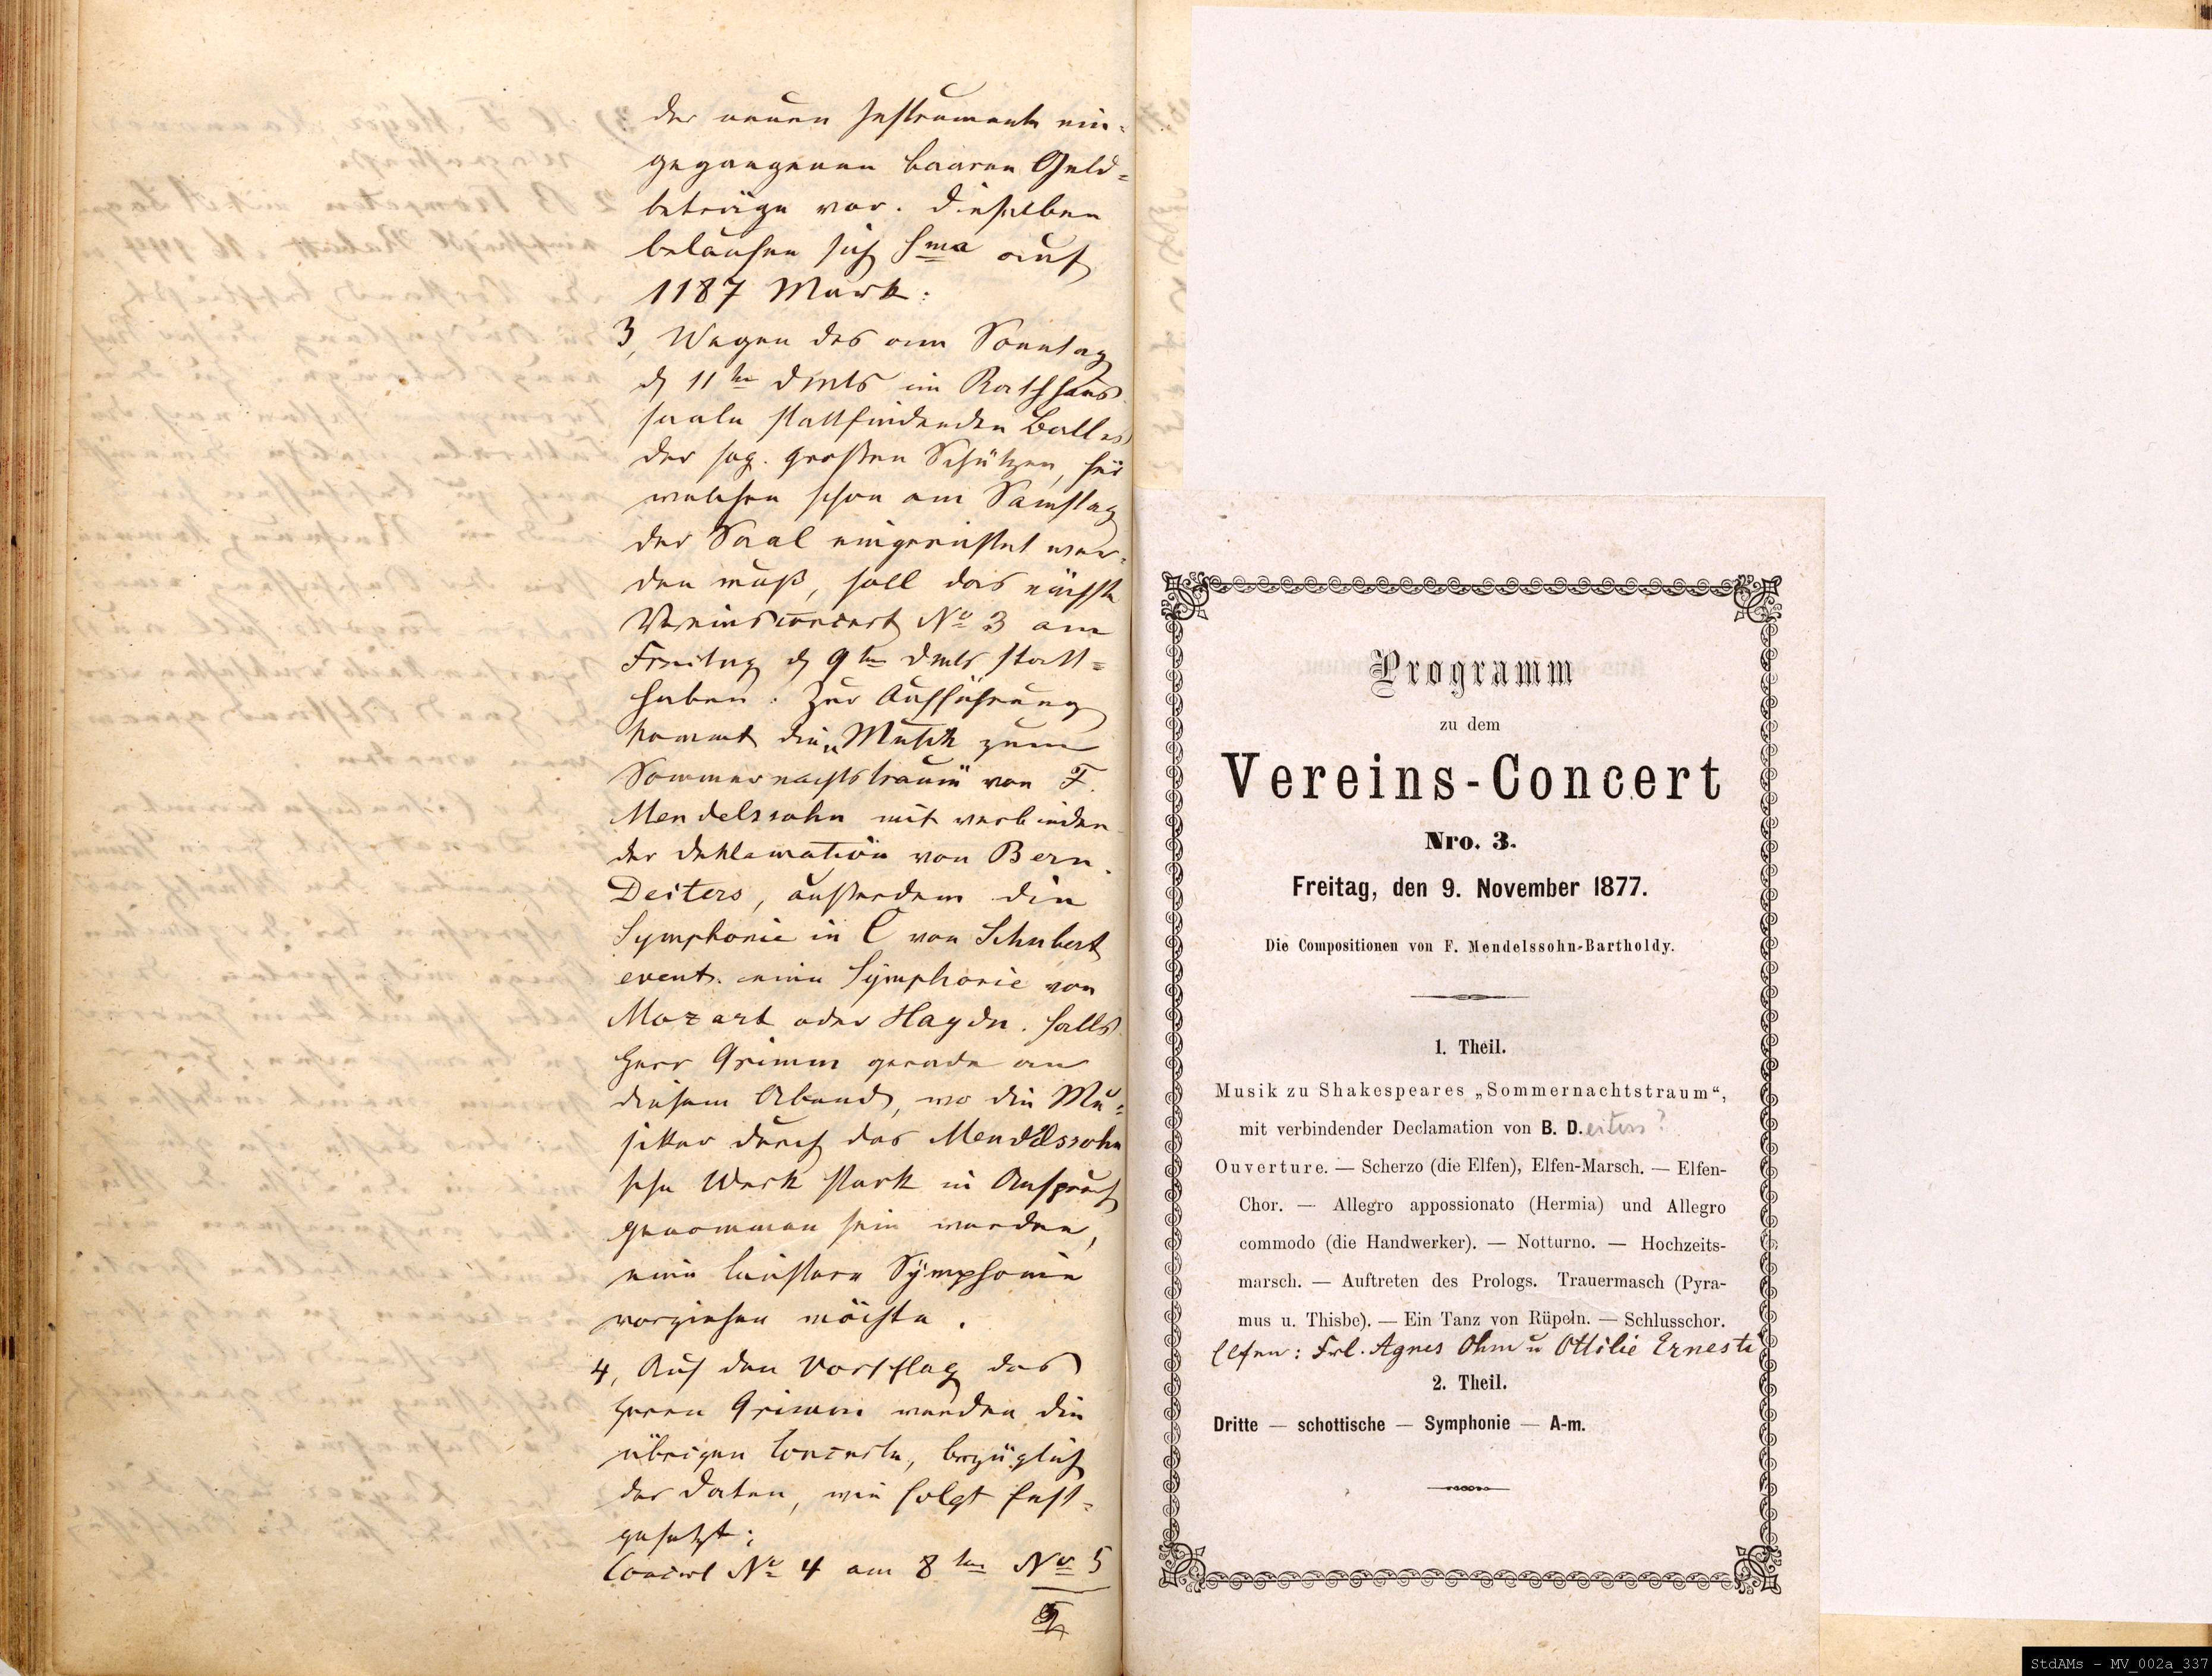 der neuen Instrumente ein-
gegangenen baaren Geld-
beträge vor. Dieselben
belaufen sich Sma auf
1187 Mark.
3, Wegen des am Sonntag
d 11ten dMts im Rathhaus
saale stattfindenden Balles
der sog. großen Schützen, für
welchen schon am Samstag
der Saal eingerichtet wer-
den muß, soll das nächste
Vereinsconcert No 3 am
Freitag d 9ten dMts statt-
haben. Zur Aufführung
kommt die „Musik zum
Sommernachtstraum" von F.
Mendelssohn mit verbinden
der Deklamation von Bern.
Deiters, außerdem die
Symphonie in C von Schubert
event. eine Symphonie von
Mozart oder Haydn. falls
Herr Grimm gerade an
diesem Abend, wo die Mu-
siker durch das Mendelssohn
sche Werk stark in Anspruch
genommen sein werden,
eine leichtere Symphonie
vorziehen möchte.
4, Auf den Vorschlag des
Herrn Grimm werden die
übrigen Concerte, bezüglich
der Daten, wie folgt fest-
gesetzt:
Concert No 4 am 8ten No 5
Programm
zu dem
Vereins-Concert
Nro. 3.
Freitag, den 9. November 1877.
Die Compositionen von F. Mendelssohn-Bartholdy.
1. Theil.
Musik zu Shakespeares „Sommernachtstraum“,
mit verbindender Declamation von B. D.eiters?
Ouverture. — Scherzo (die Elfen), Elfen-Marsch. — Elfen-
Chor. — Allegro appossionato (Hermia) und Allegro
commodo (die Handwerker). — Notturno. — Hochzeits-
marsch. — Auftreten des Prologs. Trauermasch (Pyra-
mus u. Thisbe). — Ein Tanz von Rüpeln. — Schlusschor.
Elfen: Frl. Agnes Ohm u Ottilie Ernesti
2. Theil.
Dritte — schottische — Symphonie — A-m.
StdAMs - MV_002a_337